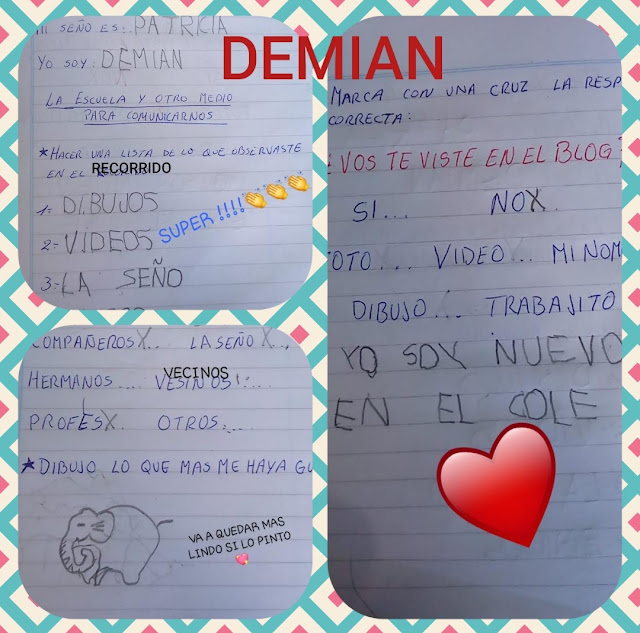 DEMIAN
MI SEÑO ES: PATRICIA
YO SOY: DEMIAN
LA ESCUELA Y OTRO MEDIO
PARA COMUNICARNOS
★HACER UNA LISTA DE LO QUE OBSERVASTE
EN EL RECORRIDO
1= DIBUJOS
2= VIDEOS SUPER !!!!👏👏👏
3= LA SEÑO
COMPAÑEROS X... LA SEÑO X...
HERMANOS.... VECINOS....
PROFES X OTROS....
★DIBUJO LO QUE MAS ME HAYA GU
VA A QUEDAR MAS
LINDO SI LO PINTO
💖
MARCA CON UNA CRUZ LA RESP
CORRECTA:
¿VOS TE VISTE EN EL BLOG?
SI... NO X
OTO... VIDEO... MI NOM
DIBUJO... TRABAJITO
YO SOY NUEVO
EN EL COLE